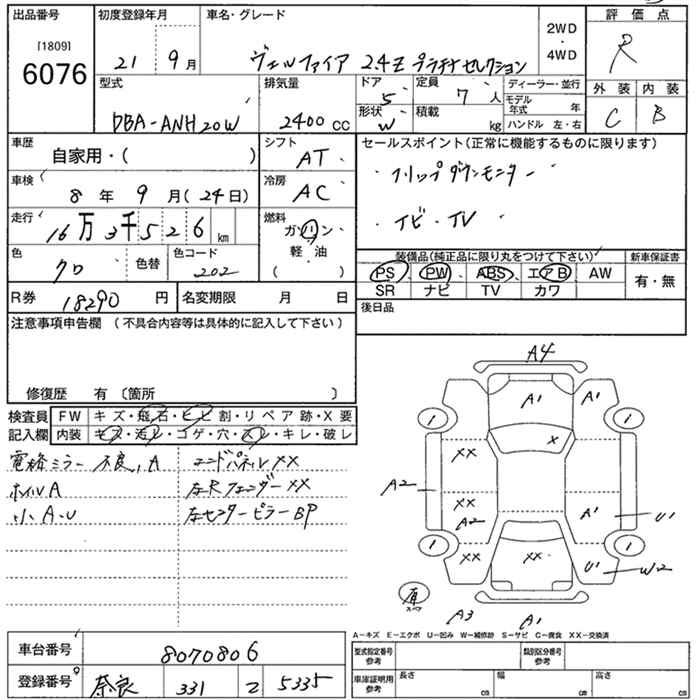 出品番号 初度登録年月 車名・グレード 評価点
[1809] 6076 21 9月 ヴェルファイア 2.4Z プラチナセレクション 2WD ・ 4WD R
外装 内装
型式 排気量 ドア 5 定員 7人 ディーラー・並行 C B
DBA-ANH20W 2400cc 形状 W 積載 kg モデル年式 年
ハンドル 左・右
車歴 自家用・( ) シフト AT セールスポイント(正常に機能するものに限ります)
車検 8年9月(24日) 冷房 AC ・フリップダウンモニター
走行 16万3千526km 燃料 ガソリン・軽油( ) ・ナビ・TV
色 クロ 色替 色コード 202 装備品(純正品に限り丸をつけて下さい) 新車保証書
PS PW ABS エアB AW 有・無
SR ナビ TV カワ
R券 18290円 名変期限 月 日 後日品
注意事項申告欄(不具合内容等は具体的に記入して下さい)
修復歴 有 〔箇所 〕
検査員 FW キズ・飛石・ヒビ割・リペア跡・X要
記入欄 内装 キズ・汚レ・コゲ・穴・スレ・キレ・破レ
電格ミラー不良,A エンドパネルXX
ホイルA 左Rフェンダー XX
小A・U 左センターピラーBP
A4
A1 A1
1 1
X
XX
A2 XX A2 A1 U1
1 1
XX XX U1 W2
有 スペア
A3 A1
A-キズ E-エクボ U-凹み W-補修跡 S-サビ C-腐食 XX-交換済
車台番号 8070806 型式指定番号 参考 類別区分番号 参考
登録番号 奈良 331 そ 5335 車庫証明用 参考 長さ cm 幅 cm 高さ cm